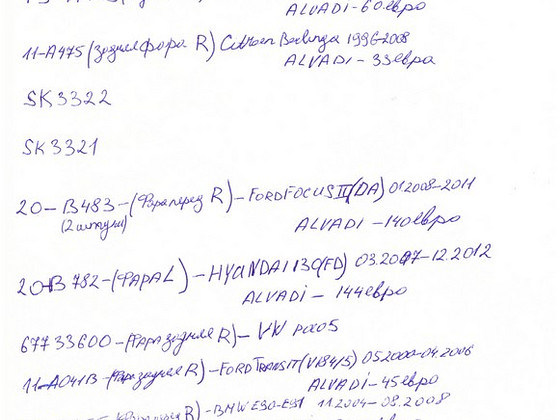 ALVADI-60евро
11-A475(задняя фара R) Citroen Berlingo 1996-2008
ALVADI-33евро
SK3322
SK3321
20-B483-(Фара перед R)-FORD FOCUS II(DA) 01.2008-2011
(2 штуки)
ALVADI-140евро
20-B782-(ФАРА L)-HYUNDAI I30(FD) 03.2007-12.2012
ALVADi-144евро
67733600-(Фара задняя R)-VW
11-A041B-(Фара задняя R)-FORD TRANSIT(V184/5) 052000-04.2006
ALVADi-45евро
R)-BMW E90-E91 11.2004-08.2008